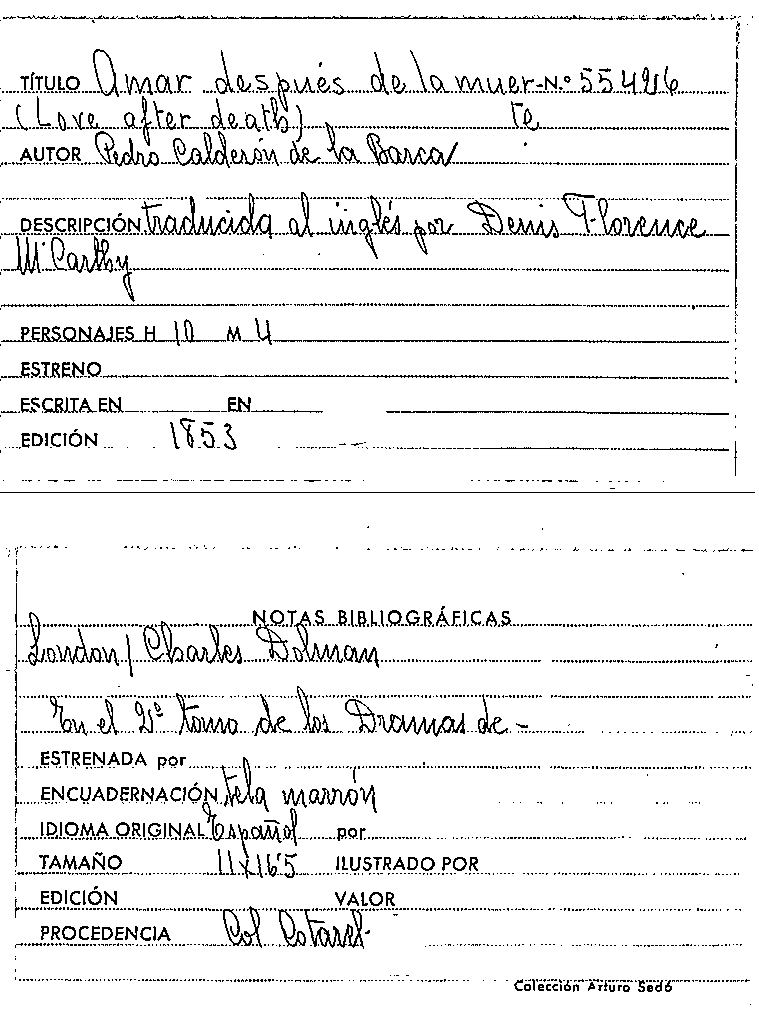 TÍTULO Amar después de la muer- N.º 55426
(Love after death) te
AUTOR Pedro Calderón de la Barca
DESCRIPCIÓN traducida al inglés por Denis Florence
Mc Carthy
PERSONAJES H 10 M 4
ESTRENO
ESCRITA EN EN
EDICIÓN 1853
NOTAS BIBLIOGRÁFICAS
London / Charles Dolman
En el 2º tomo de los Dramas de -
ESTRENADA por
ENCUADERNACIÓN tela marrón
IDIOMA ORIGINAL Español por
TAMAÑO 11x16'5 ILUSTRADO POR
EDICIÓN VALOR
PROCEDENCIA Col Cotarel-
Colección Arturo Sedó